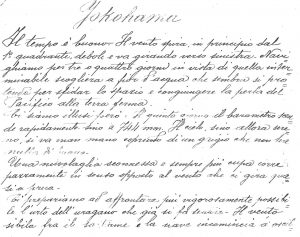 Yokohama
Il tempo è buono. Il vento spira, in principio dal
1º quadrante, debole e va girando verso sinistra. Navi
ghiamo per tre o quattro giorni in vista di quella inter
minabile scogliera a fior d'acqua che sembra si pro
tenda per sfidar lo spazio e congiungere la perla del
Pacifico alla terra ferma.
Ci siamo illusi però. Il quinto giorno il barometro scen
de rapidamente sino a 744 mm. Il cielo, sino allora sere
no, si va man mano coprendo di un grigio che non ha
nulla di buono.
Una nuvolaglia sconnessa e sempre più cupa corre
pazzamente in senso opposto al vento che ci gira qua
si a prua.
Ci prepariamo ad affrontare più vigorosamente possibi
le l'urlo dell'uragano che già si fa sentire. Il vento
sibila fra il sartiame e la nave incomincia a